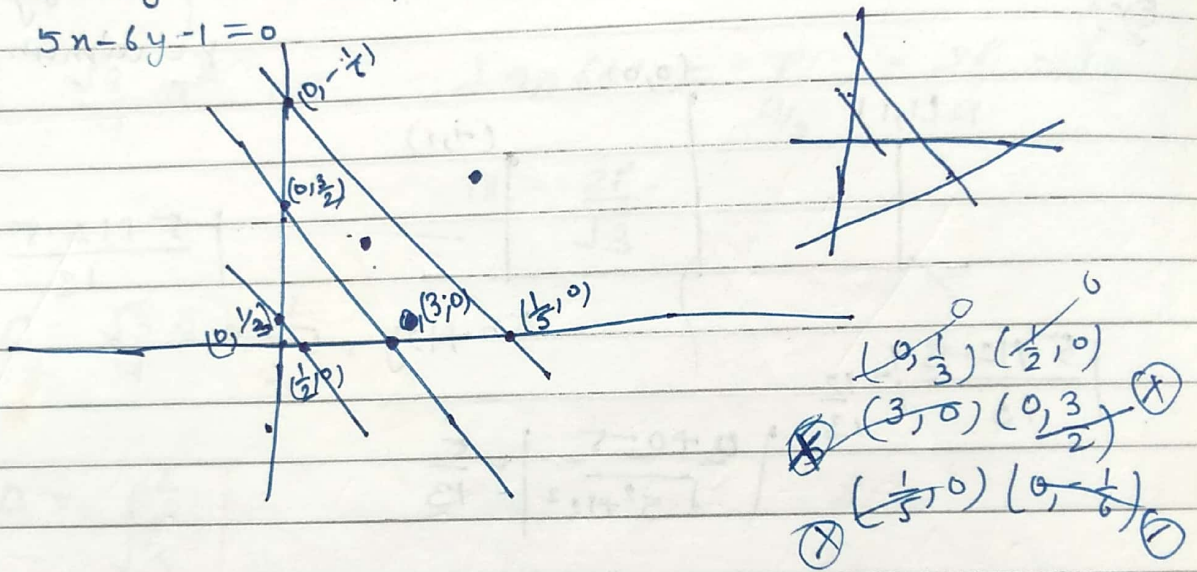 5x-6y-1=0
(0,-1/6)
(0,3/2)
(0,1/3)
(3,0)
(1/5,0)
(1/2,0)
0 0
(0,1/3) (1/2,0)
(3,0) (0,3/2)
(1/5,0) (0,-1/6)